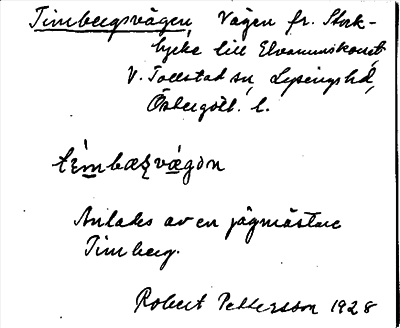 Timbergsvägen, Vägen fr. Stock-
lycke till Elvarumskonst,
V. Tollstad sn, Lysings hd,
Östergötl. l.
tìmbæʀvǽgɷn
Anlades av en jägmästare
Timberg.
Robert Pettersson 1928